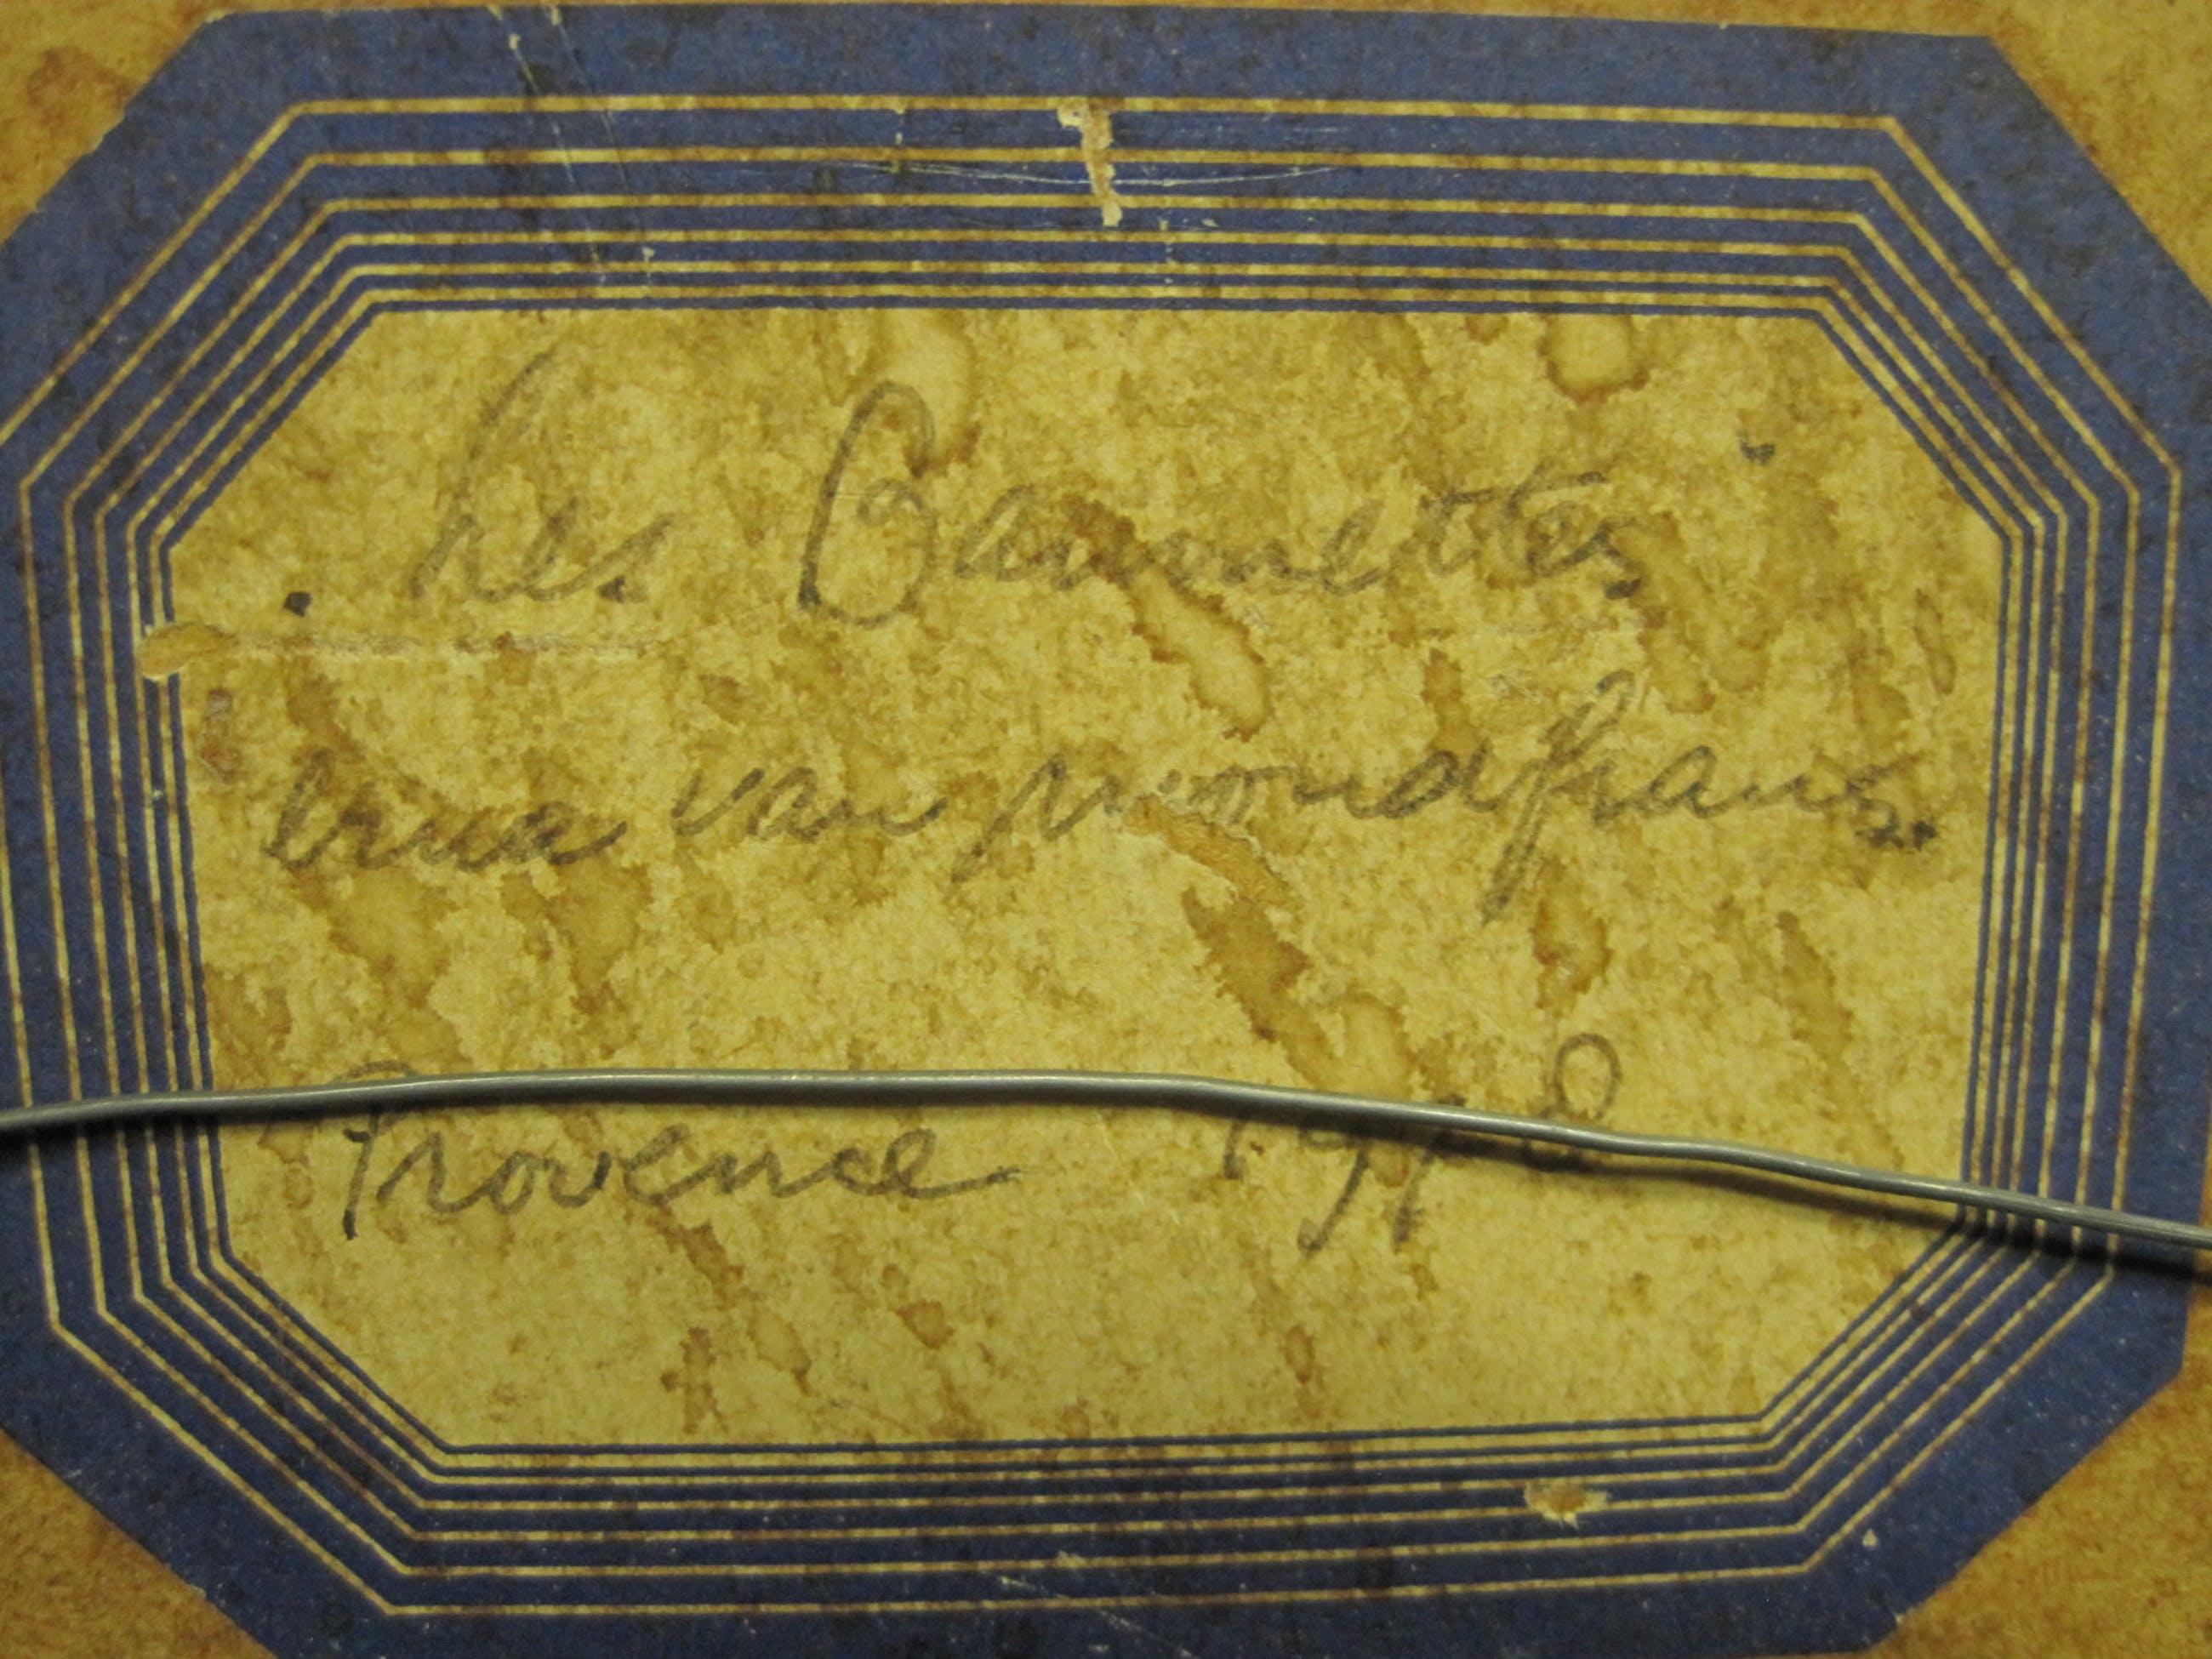 Les Baumettes
erna van mondfrans.
Provence